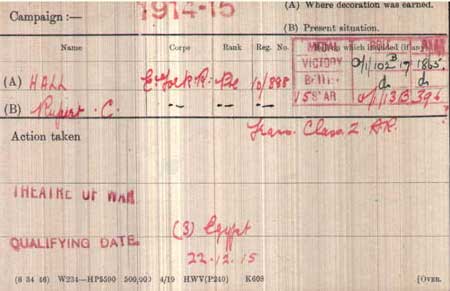 (A) Where decoration was earned.
Campaign :— 1914-15
(B) Present situation.
Name Corps Rank Reg. No. which included (if any)
MEDAL ROLL PAGE
(A) HALL E. York. R. Pte 10/888 VICTORY O/1/102 B 17 1865.
BRITISH do. do.
(B) Rupert . C. -"- -"- 15 STAR O/1/13 B 396
Action taken Trans. Class Z. A.R.
THEATRE OF WAR.
(3) Egypt
QUALIFYING DATE.
22.12.15
(6 34 46) W234—HP5590 500,000 4/19 HWV(P240) K608 [OVER.